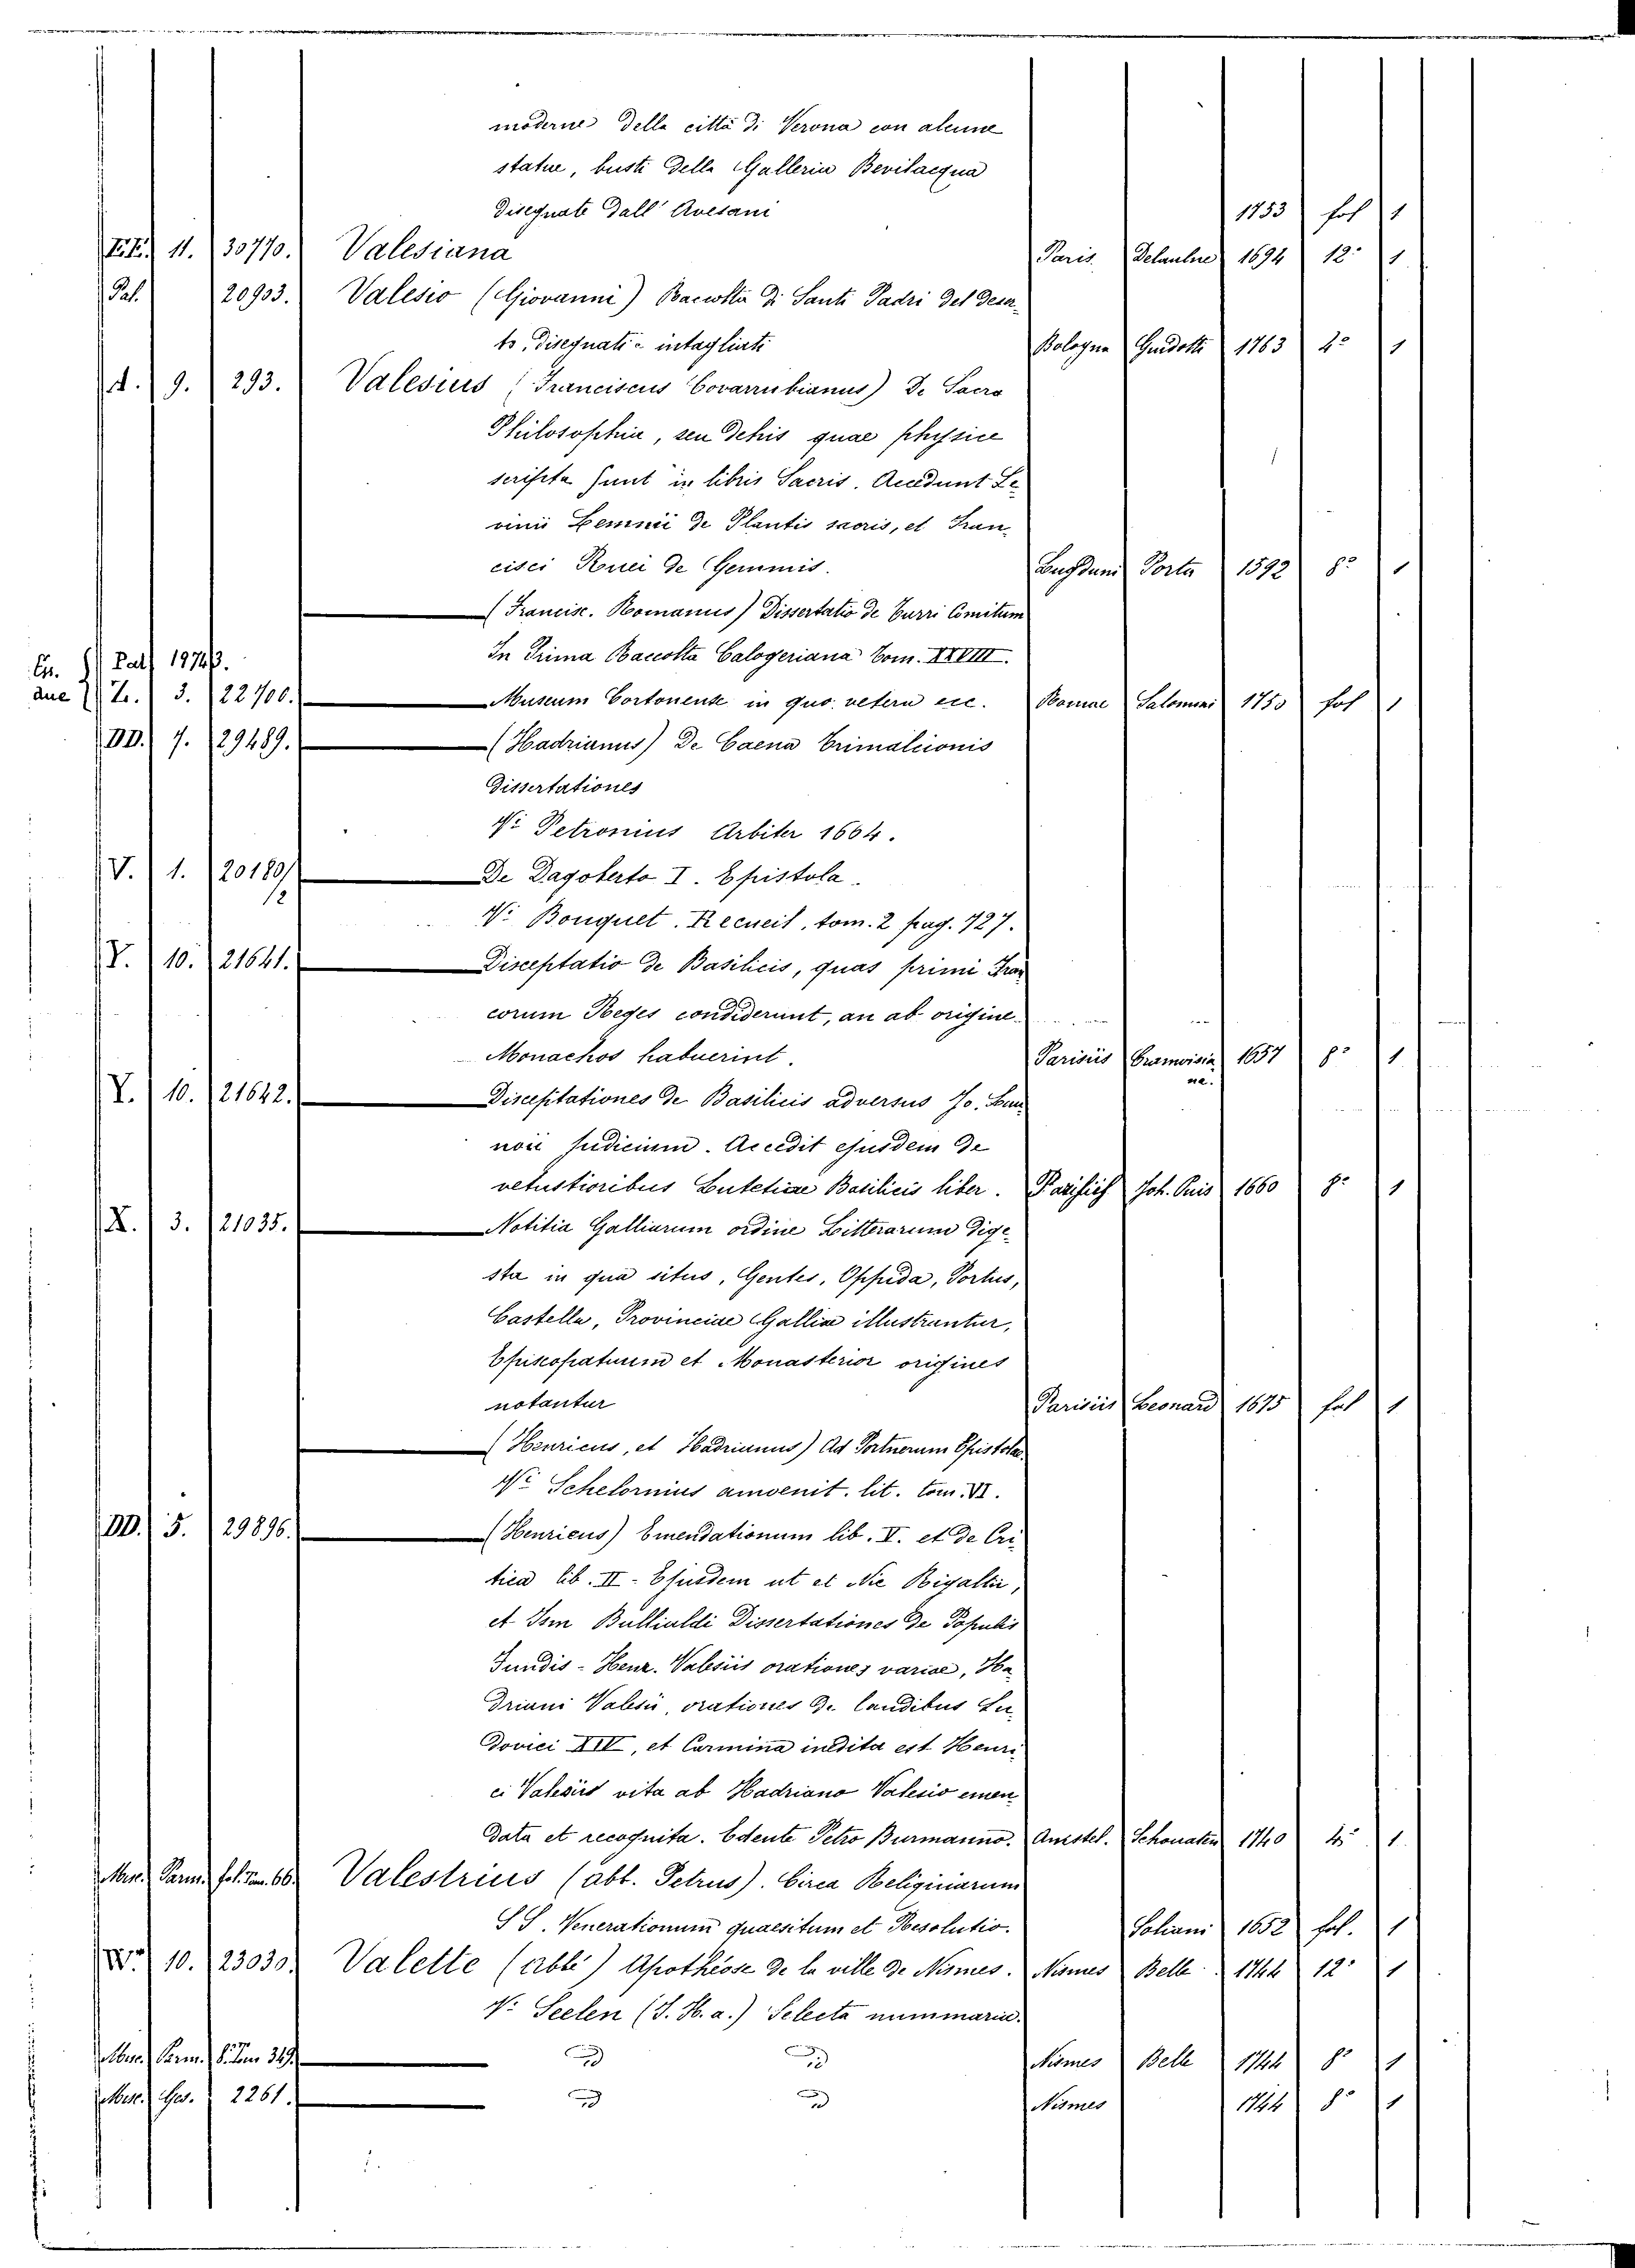 moderne della città di Verona con alcune
statue, busti della Galleria Bevilacqua
disegnate dall' Avesani 1753 fol 1
11. 30770. Valesiana Paris. Delaulne 1694 12° 1
Pal. 20903. Valesio (Giovanni) Raccolta di Santi Padri del deser-
to, disegnati e intagliati Bologna Guidotti 1763 4° 1
A. 9. 293. Valesius (Franciscus Covarrubianus) De Sacra
Philosophia, seu de his quae physice
scripta sunt in libris Sacris. Accedunt Le-
vinii Lemnii de Plantis sacris, et Fran-
cisci Ruei de Gemmis. Lugduni Porta 1592 8° 1
(Francisc. Romanus) Dissertatio de Curri Comitum
In Prima Raccolta Calogeriana Tom. XXVIII.
Pal 19743.
due 3. 22700. Museum Cortonense in quo vetera etc. Romae Salomoni 1750 fol 1
DD. 7. 29489. (Hadrianus) De Caena Trimalcionis
Dissertationes
V: Petronius Arbiter 1664.
V. 1. 20180/12 De Dagoberto I. Epistola.
V: Bouquet. Recueil, tom. 2 pag. 727.
Y. 10. 21641. Disceptatio de Basilicis, quas primi Fran
corum Reges condiderunt, an ab origine
Monachos habuerint. Parisiis Cramoisia 1657 8° 1
na.
Y. 10. 21642. Disceptationes de Basilicis adversus Jo. Lau
noii judicium. Accedit ejusdem de
vetustioribus Lutetiae Basilicis liber. Parisiis Joh. Puis 1660 8° 1
X. 3. 21035. Notitia Galliarum ordine Litterarum dige-
sta in qua situs, Gentes, Oppida, Portus,
Castella, Provinciae Galliae illustrantur,
Episcopatuum et Monasterior origines
notantur Parisiis Leonard 1675 fol 1
(Henricus, et Hadrianus) Ad Portnerum Epistolae
V: Schelornius amoenit. lit. tom. VI.
DD. 5. 29896. (Henricus) Emendationum lib. V. et de Cri-
tica lib. II - Ejusdem ut et Nic Rigaltii,
et Ism Bullialdi Dissertationes de Populis
Fundis - Henr. Valesiis orationes variae, Ha
driani Valesii, orationes de laudibus Lu-
dovici XIV, et Carmina inedita est Henri
ci Valesiis vita ab Hadriano Valesio emen
data et recognita. Edente Petro Burmanno. Amstel. Schouaten 1740 4° 1
Misc. Parm. fol. Tom. 66. Valestrius (abb. Petrus). Circa Religiniarum
SS. Venerationum quaesitum et Resolutio. Soliani 1652 fol. 1
10. 23030. Valette (abbé) Apothéose de la ville de Nismes. Nismes Belle 1744 12° 1
V: Seelen (J. H. a.) Selecta nummaria.
Misc. Parm. 8. Tom 349. D D Nismes Belle 1744 8° 1
Misc. Ges. 2261. D D Nismes 1744 8° 1